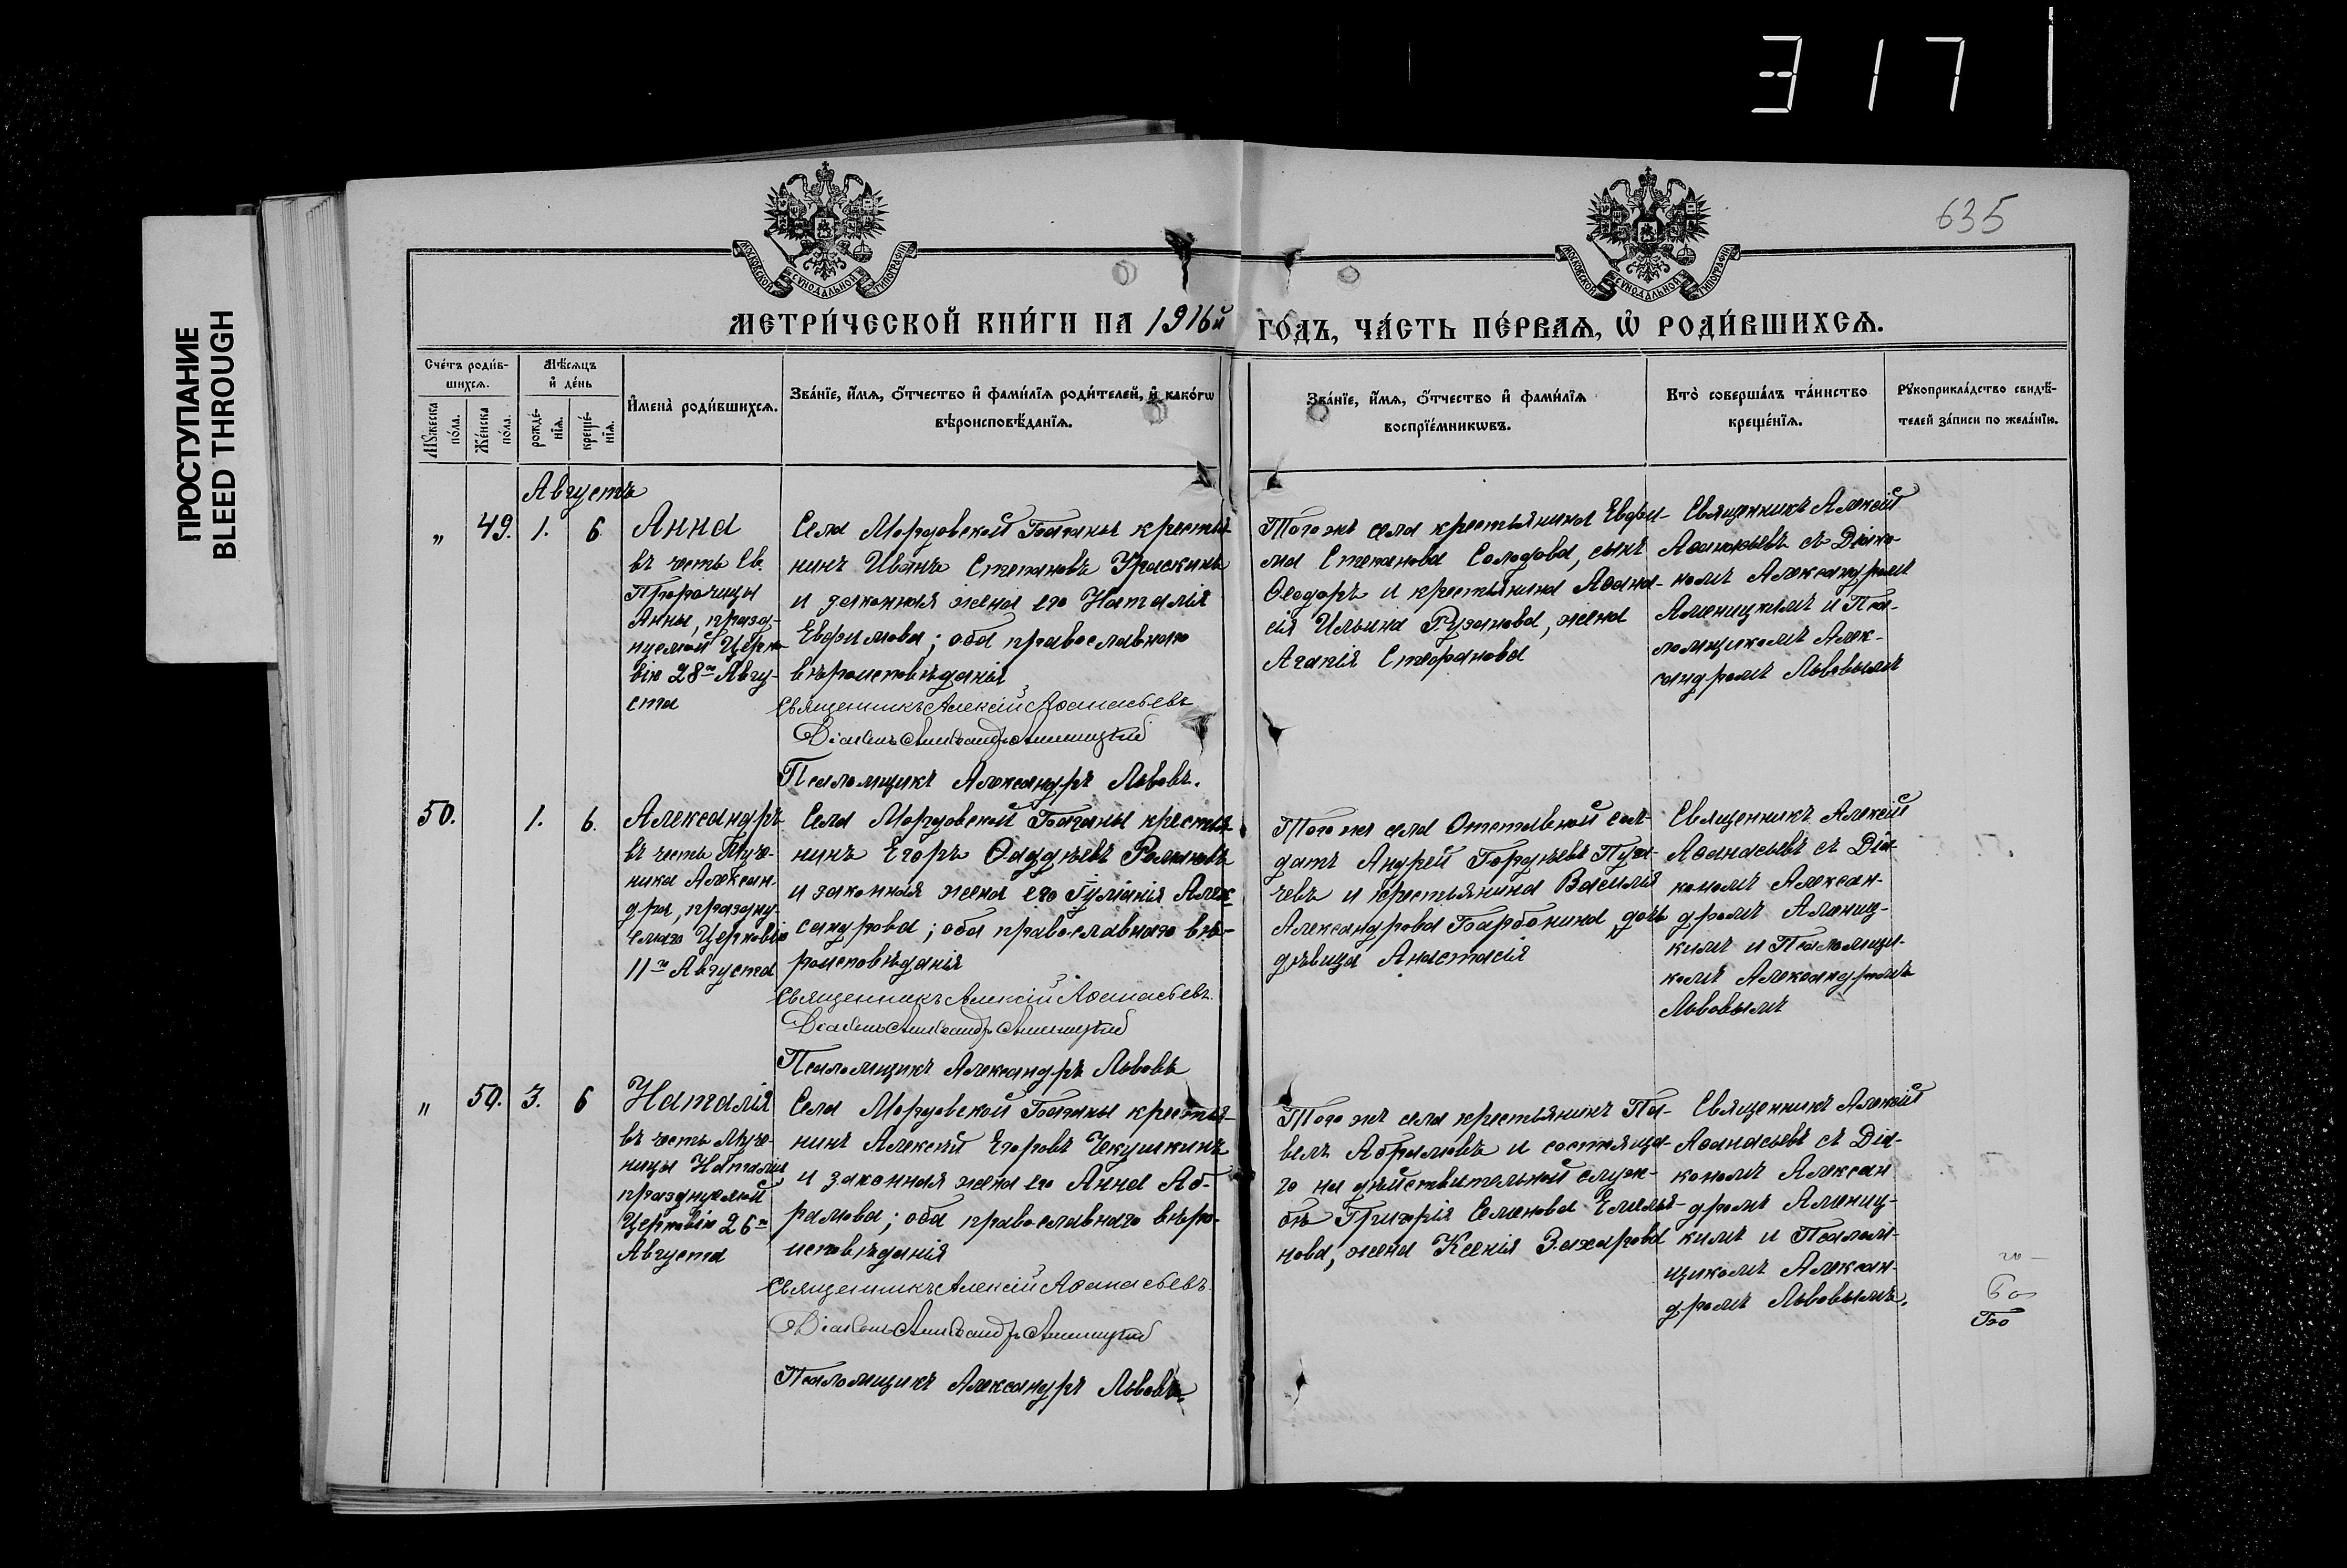 3171
ПРОСТУПАНИЕ
BLEED THROUGH
635
МОСКОВСКОЙ СѴНОДАЛЬНОЙ ТИПОГРАФІИ
МОСКОВСКОЙ СѴНОДАЛЬНОЙ ТИПОГРАФІИ
МЕТРИ́ЧЕСКОЙ КНИ́ГИ НА 1916й ГО́ДЪ, ЧА́СТЬ ПЕ́РВАѦ, Ѡ҆ РОДИ́ВШИХСѦ.
Сче́тъ роди́в-
шихсѧ.
Мѣ́сѧцъ
и҆ де́нь
Мꙋ́жеска
по́ла.
Же́нска
по́ла.
рожде́-
нїѧ.
креще́-
нїѧ.
И҆мена̀ роди́вшихсѧ.
Зва́нїе, и҆́мѧ, о҆́тчество и҆ фами́лїѧ роди́телей, и҆ како́гѡ
вѣроисповѣ́данїѧ.
Зва́нїе, и҆́мѧ, о҆́тчество и҆ фами́лїѧ
воспрїе́мникѡвъ.
Кто̀ соверша́лъ та́инство
креще́нїѧ.
Рꙋкоприкла́дство свидѣ́-
телей за́писи по жела́нїю.
Августъ
„ 49. 1. 6.
Анна
въ честь Св.
Пророчицы
Анны, празд-
нуемой Церко-
вію 28го Авгу-
ста
Села Мордовской Баганы крестья-
нинъ Иванъ Степановъ Ураскинъ
и законная жена его Наталія
Евфимова; оба православнаго
вѣроисповѣданія
Священникъ Алексій Аѳанасьевъ
Діаконъ Александръ Аменицкій
Псаломщикъ Александръ Львовъ.
Того же села крестьянина Евфи-
ма Степанова Солодова, сынъ
Ѳеодоръ и крестьянина Аѳана-
сія Ильина Рузанова, жена
Агапія Стефанова
Священникъ Алексій
Аѳанасьевъ съ Діако-
номъ Александромъ
Аменицкимъ и Пса-
ломщикомъ Алек-
сандромъ Львовымъ
50. 1. 6.
Александръ
въ честь Муче-
ника Алексан-
дра, праздну-
емаго Церковію
11го Августа
Села Мордовской Баганы крестья-
нинъ Егоръ Ѳаддѣевъ Романовъ
и законная жена его Іуліанія Алек-
сандрова; оба православнаго вѣ-
роисповѣданія
Священникъ Алексій Аѳанасьевъ.
Діаконъ Александръ Аменицкій
Псаломщикъ Александръ Львовъ
Того же села Отставной сол-
датъ Андрей Гордѣевъ Пуга-
чевъ и крестьянина Василія
Александрова Барбонина дочь
дѣвица Анастасія
Священникъ Алексій
Аѳанасьевъ съ Діа-
кономъ Алексан-
дромъ Амениц-
кимъ и Псаломщи-
комъ Александромъ
Львовымъ
„ 50. 3. 6
Наталія
въ честь Муче-
ницы Наталіи
празднуемой
Церковію 26го
Августа
Села Мордовской Баганы крестья-
нинъ Алексѣй Егоровъ Чекушкинъ
и законная жена его Анна Аб-
рамова; оба православнаго вѣро-
исповѣданія
Священникъ Алексій Аѳанасьевъ.
Діаконъ Александръ Аменицкій
Псаломщикъ Александръ Львовъ.
Того же села крестьянинъ Па-
велъ Абрамовъ и состояща-
го на дѣйствительной служ-
бѣ Григорія Семенова Емелья-
нова, жена Ксенія Захарова
Священникъ Алексій
Аѳанасьевъ съ Діа-
кономъ Алексан
дромъ Амениц-
кимъ и Псалом-
щикомъ Алексан-
дромъ Львовымъ.